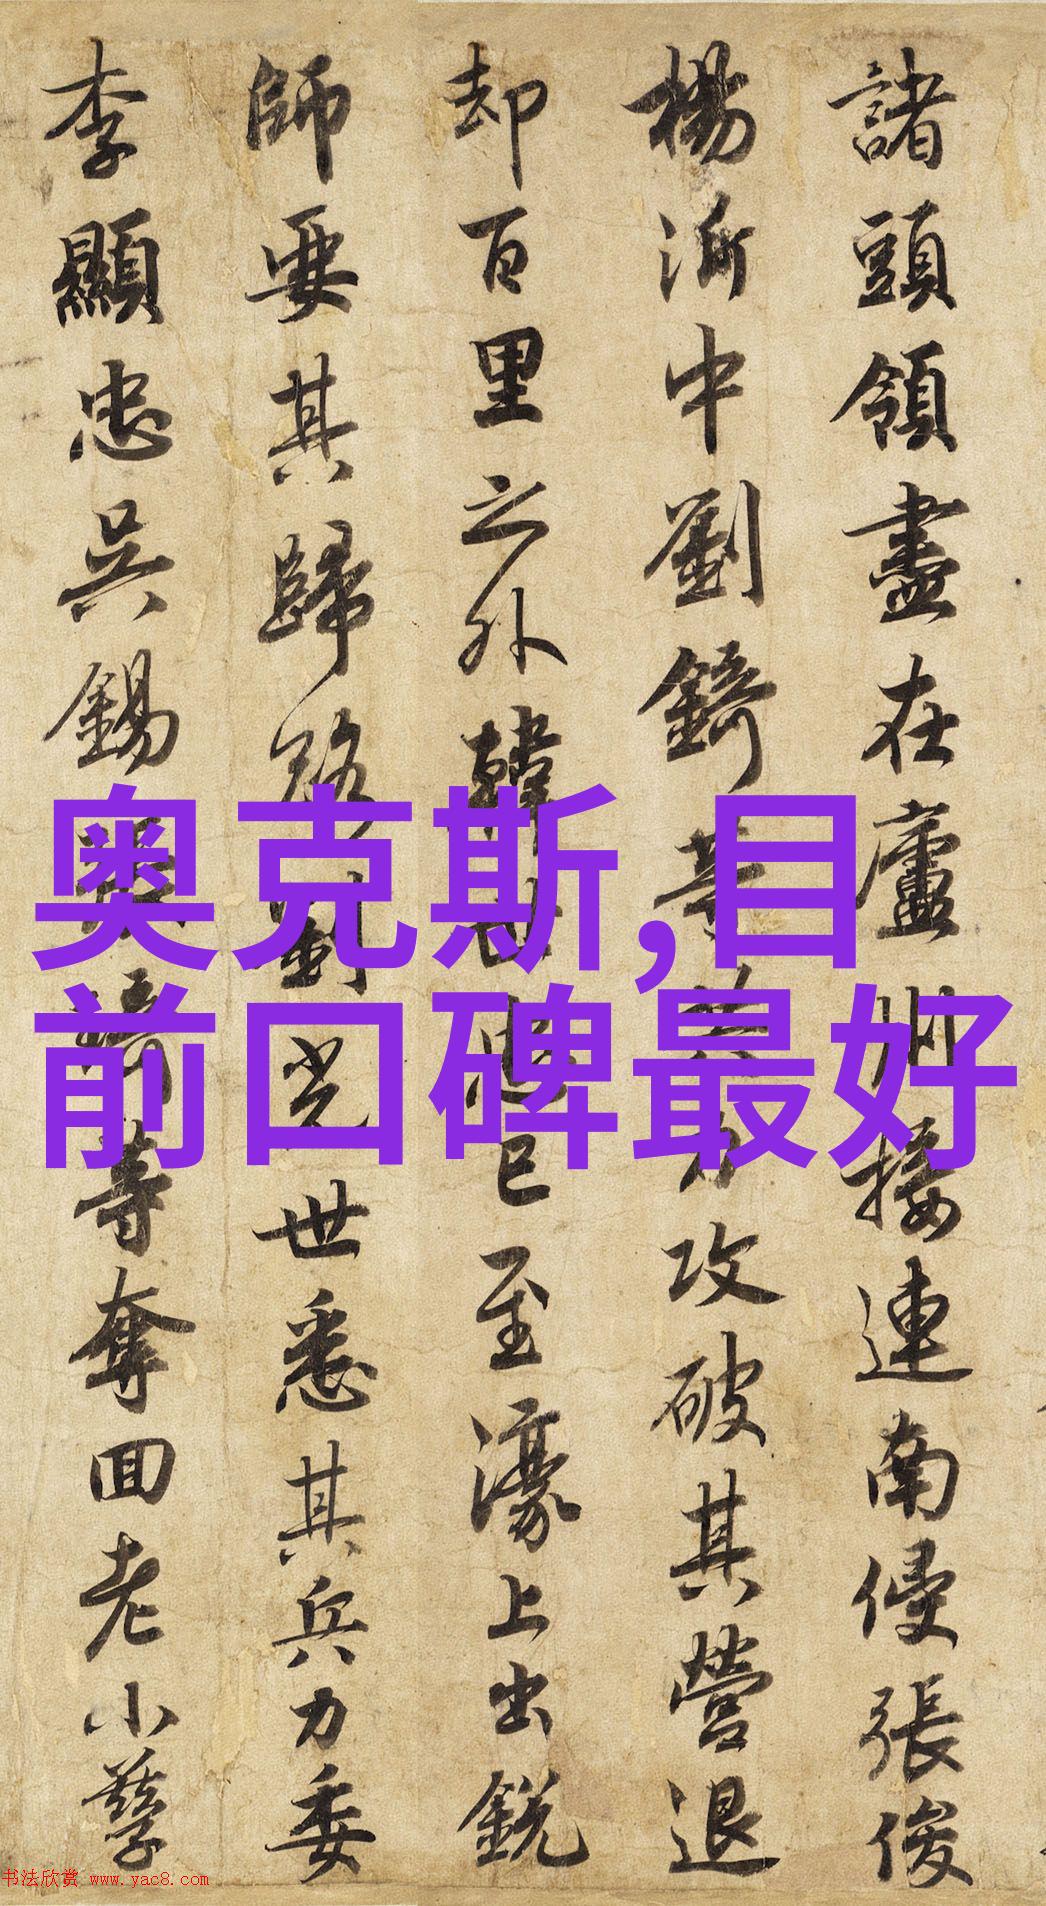 諸頭領盡在廬州接連南侵張俊
楊沂中劉錡等共力攻破其營退
却百里之外韓世忠已至濠上出銳
師要其歸路劉光世悉其兵力委
李顯忠吳錫張琦等奪回老小孳
奥克斯,目
前口碑最好
书法欣赏 www.yac8.com